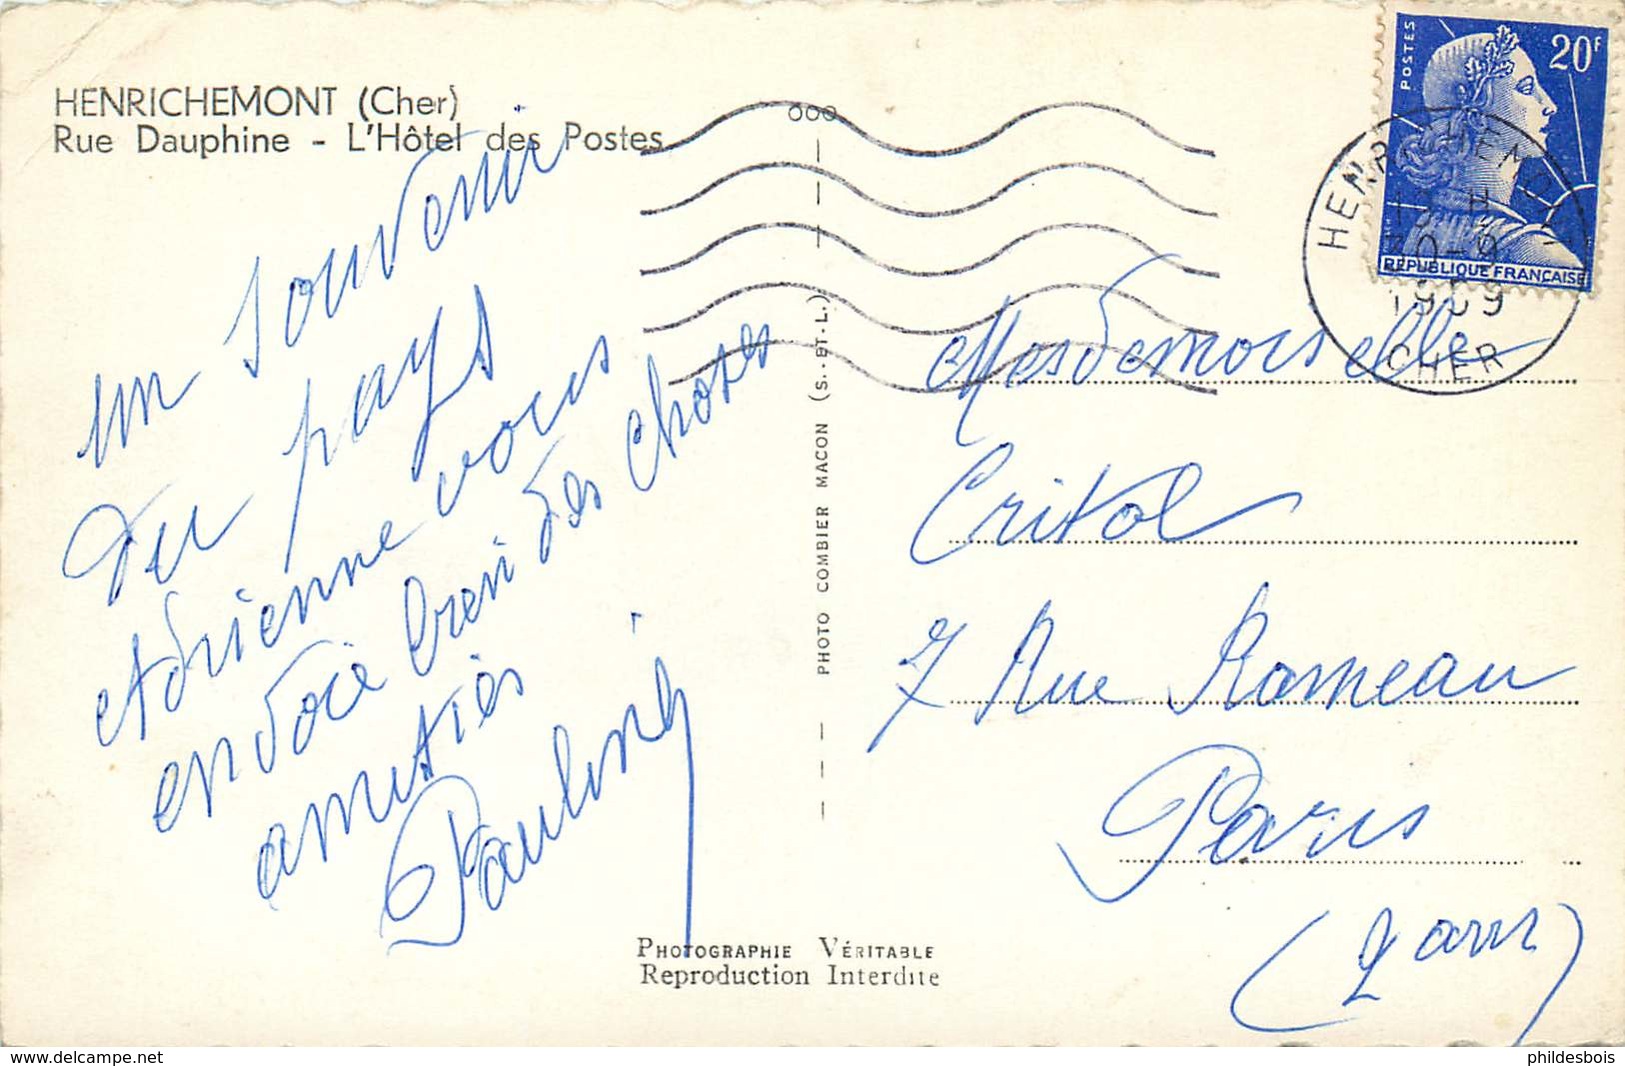 HENRICHEMONT (Cher)
Rue Dauphine - L'Hôtel des Postes
un souvenir
du pays
Adrienne vous
envoie bien des choses
amitiés
Pauline
PHOTO COMBIER MACON (S.-ET-L.)
PHOTOGRAPHIE VÉRITABLE
Reproduction Interdite
POSTES
20F
RÉPUBLIQUE FRANÇAISE
HENRICHEMONT
30-9
1959
CHER
Mesdemoiselle
Critol
7 Rue Rameau
Paris
(2 arr)
delcampe.net
phildesbois